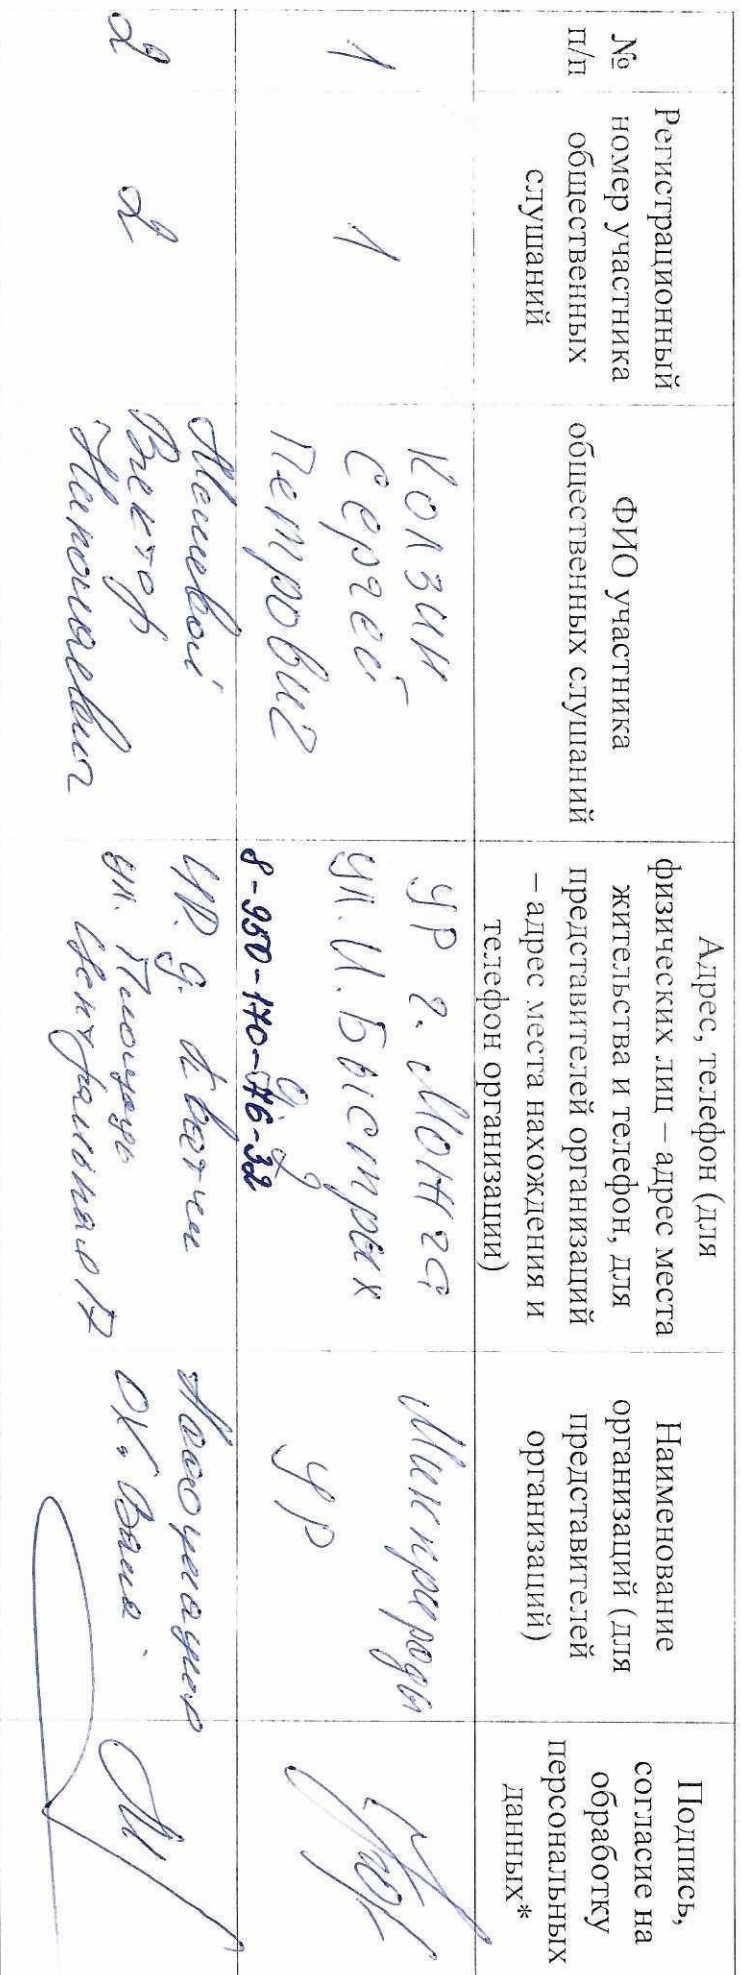 №
п/п
Регистрационный
номер участника
общественных
слушаний
ФИО участника
общественных слушаний
Адрес, телефон (для
физических лиц – адрес места
жительства и телефон, для
представителей организаций
– адрес места нахождения и
телефон организации)
Наименование
организаций (для
представителей
организаций)
Подпись,
согласие на
обработку
персональных
данных*
1
1
Колзин
Сергей
Петрович
УР г. Можга
ул. И. Быстрых
8-950-170-76-32
Минприроды
УР
2
2
Виктор
Николаевич
УР. д.
ул. Площадь
Центральная 17
Ассоциация